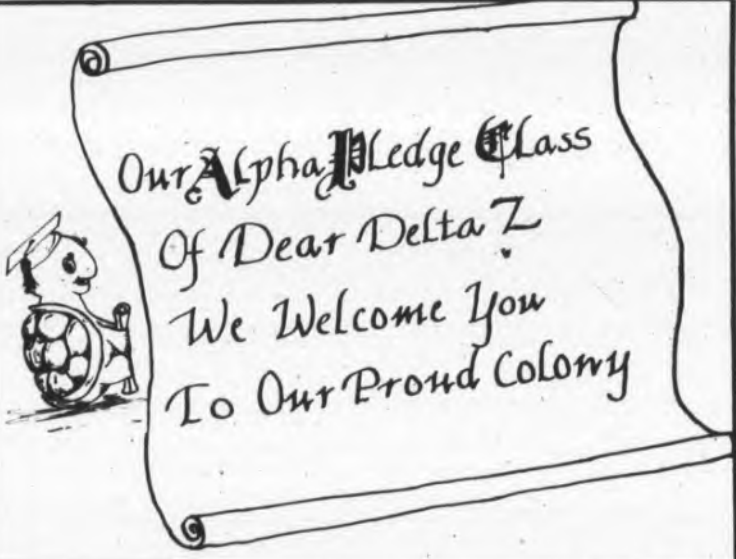 Our Alpha Pledge Class
Of Dear Delta Z
We Welcome You
To Our Proud Colony